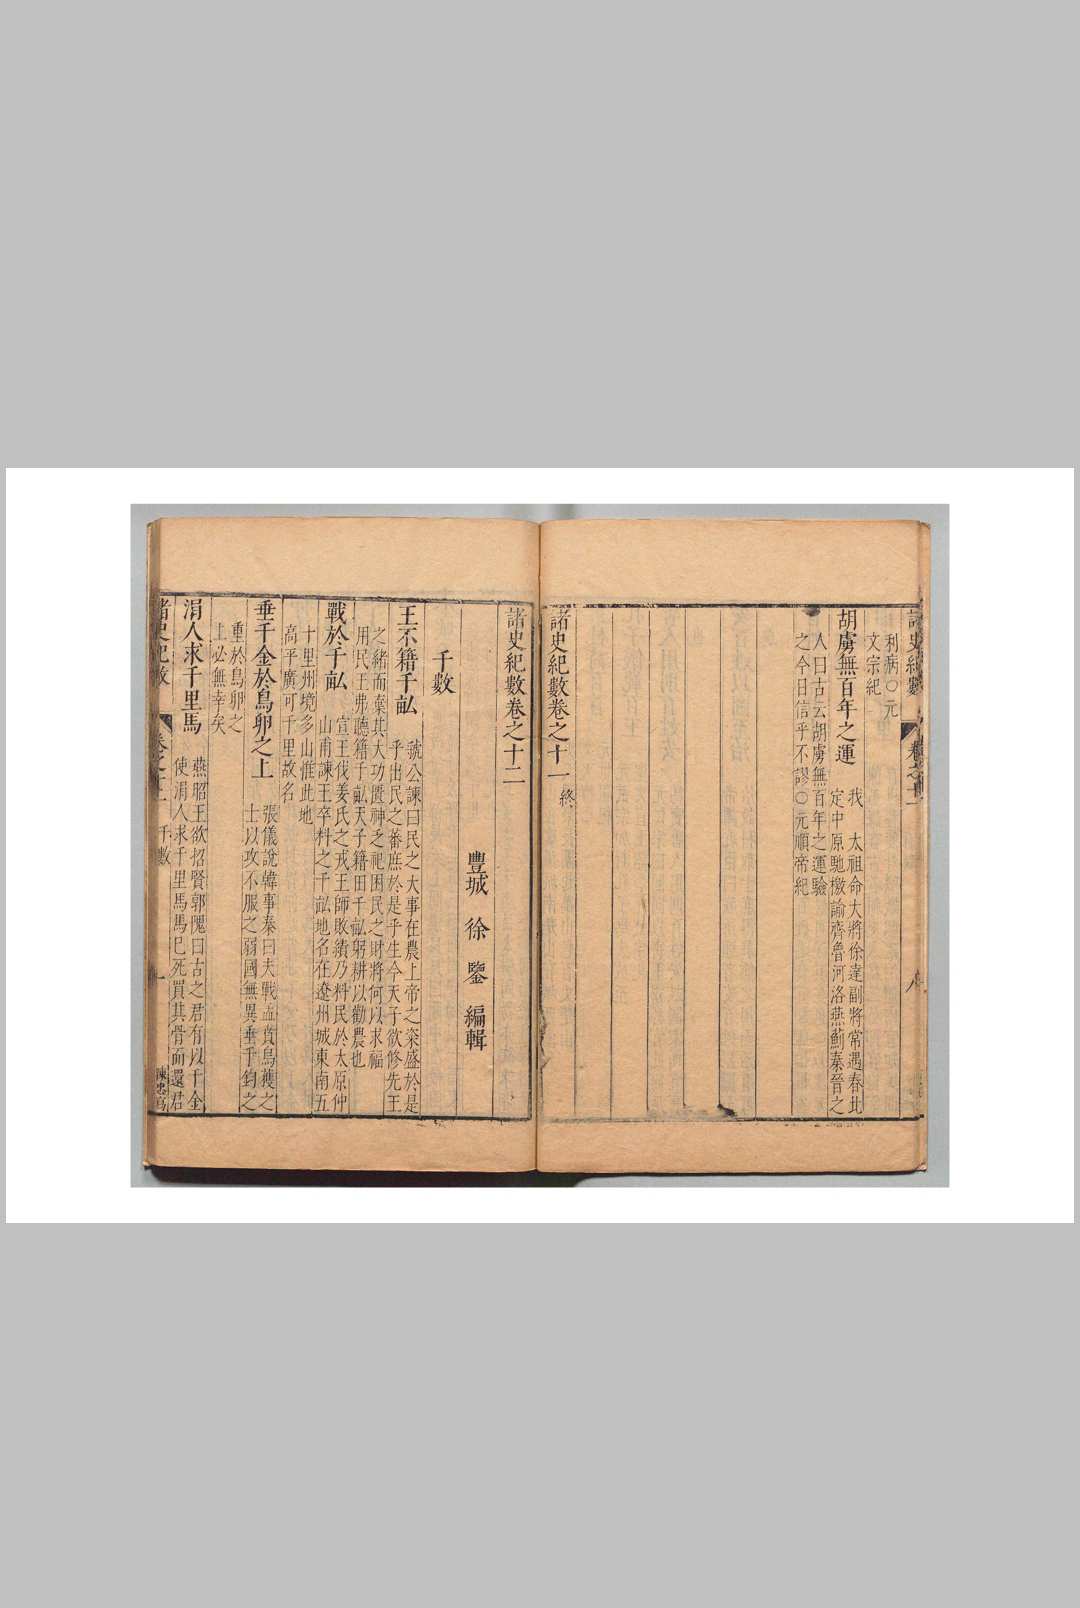 諸史紀數
卷之十一
利病〇元
文宗紀
胡虜無百年之運
我 太祖命大將徐達副將常遇春北
定中原馳檄諭齊魯河洛燕薊秦晉之
人曰古云胡虜無百年之運驗
之今日信乎不謬〇元順帝紀
諸史紀數卷之十一 終
諸史紀數卷之十二
豐城 徐 鑒 編輯
千數
王不籍千畝
虢公諫曰民之大事在農上帝之粢盛於是
乎出民之蕃庶於是乎生今天子欲修先王
之緒而棄其大功匱神乏祀困民之財將何以求福
用民王弗聽籍千畝天子籍田千畝躬耕以勸農也
戰於千畝
宣王伐姜氏之戎王師敗績乃料民於太原仲
山甫諫王卒料之千畝地名在遼州城東南五
十里州境多山惟此地
高平廣可千里故名
垂千金於鳥卵之上
張儀說韓事秦曰夫戰孟賁烏獲之
士以攻不服之弱國無異垂千鈞之
重於鳥卵之
上必無幸矣
涓人求千里馬
燕昭王欲招賢郭隗曰古之君有以千金
使涓人求千里馬馬已死買其骨而還君
諸史紀數
卷之十二 千數
一